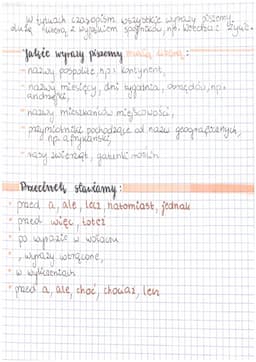 W tytułach czasopism wszystkie wyrazy piszemy
dużą literą, z wyjątkiem spójników, np. Wiedza i Życie.
Jakie wyrazy piszemy małą literą:
- nazwy pospolite, np. kontynent,
- nazwy miesięcy, dni tygodnia, obrzędów, np.
andrzejki,
- nazwy mieszkańców miejscowości,
- przymiotniki pochodzące od nazw geograficznych,
np. afrykański,
- rasy zwierząt, gatunki roślin
Przecinek stawiamy:
• przed a, ale, lecz, natomiast, jednak
• przed więc, toteż
• po wyrazie w wołaczu
• , wyrazy wtrącone,
• w wyliczeniach
• przed a, ale, choć, chociaż, lecz